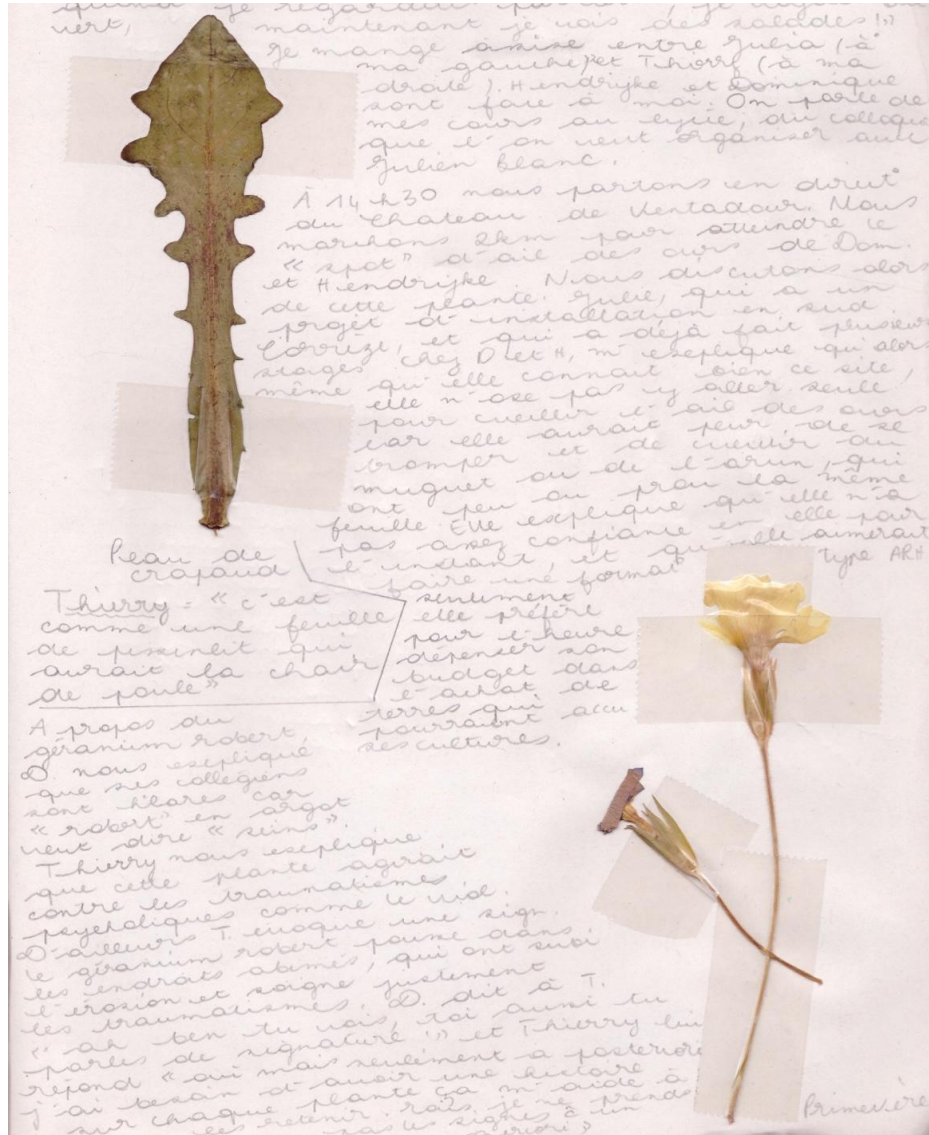 quand je regardais
vert, maintenant je vois des salades !»
Je mange assise entre Julia (à
ma gauche) et Thierry (à ma
droite). Hendrijke et Dominique
sont face à moi. On parle de
mes cours au lycée, du colloque
que l'on veut organiser avec
Julien Blanc.
À 14h30 nous partons en direct°
du Chateau de Ventadour. Nous
marchons 2km pour atteindre le
"spot" d'ail des ours de Dom.
et Hendrijke. Nous discutons alors
de cette plante. Julie, qui a un
projet d'installation en sud
Corrèze, et qui a déjà fait plusieurs
stages chez D et H, m'explique qu'alors
même qu'elle connait bien ce site,
elle n'ose pas y aller seule
pour cueillir l'ail des ours
car elle aurait peur de se
tromper et de cueillir du
muguet ou de l'arum, qui
ont peu ou prou la même
feuille. Elle explique qu'elle n'a
pas assez confiance en elle pour
l'instant, et qu'elle aimerait
faire une format° type ARH
sentiment
elle préfère
pour l'heure
dépenser son
budget dans
l'achat de
terres qui
pourraient accu
ses cultures.
Peau de
crapaud
Thierry : « c'est
comme une feuille
de pissenlit qui
aurait la chair
de poule »
A propos du
géranium robert,
D. nous explique
que ses collégiens
sont hilares car
« robert » en argot
veut dire « seins »
Thierry nous explique
que cette plante agirait
contre les traumatismes
psychologiques comme le viol.
D'ailleurs T. évoque une sign.
le géranium robert pousse dans
les endroits abimés, qui ont subi
l'érosion et soigne justement
les traumatismes. D. dit à T.
« ah ben tu vois, toi aussi tu
parles de signature !» et Thierry lui
répond « oui mais seulement a posteriori
j'ai besoin d'avoir une histoire
sur chaque plante ça m'aide à
les retenir. mais je ne prends
pas les signes à un
Primevère